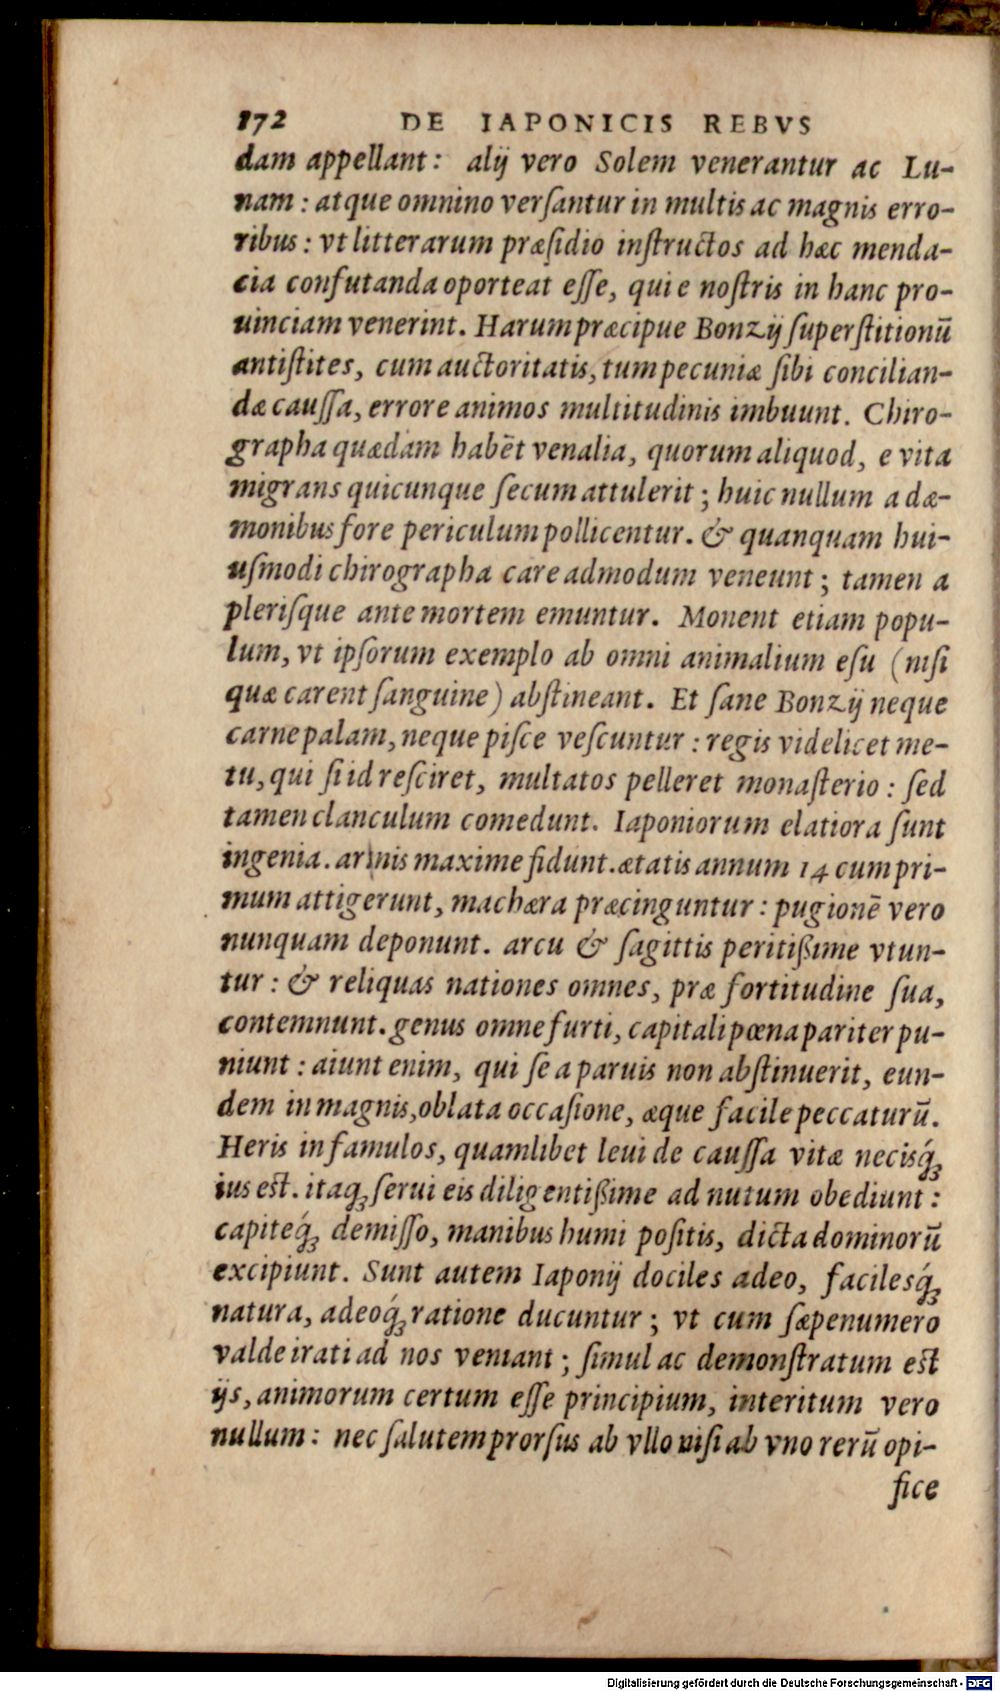 172 DE IAPONICIS REBVS
dam appellant: alij vero Solem venerantur ac Lu-
nam: atque omnino verſantur in multis ac magnis erro-
ribus: vt litterarum præſidio inſtructos ad hæc menda-
cia confutanda oporteat eſſe, qui e noſtris in hanc pro-
uinciam venerint. Harum præcipue Bonzij ſuperſtitionū
antiſtites, cum auctoritatis, tum pecuniæ ſibi concilian-
dæ cauſſa, errore animos multitudinis imbuunt. Chiro-
grapha quædam habēt venalia, quorum aliquod, e vita
migrans quicunque ſecum attulerit; huic nullum a dæ-
monibus fore periculum pollicentur. & quanquam hui-
uſmodi chirographa care admodum veneunt; tamen a
pleriſque ante mortem emuntur. Monent etiam popu-
lum, vt ipſorum exemplo ab omni animalium eſu (niſi
quæ carent ſanguine) abſtineant. Et ſane Bonzij neque
carne palam, neque piſce veſcuntur: regis videlicet me-
tu, qui ſi id reſciret, multatos pelleret monaſterio: ſed
tamen clanculum comedunt. Iaponiorum elatiora ſunt
ingenia. armis maxime fidunt. ætatis annum 14 cum pri-
mum attigerunt, machæra præcinguntur: pugionē vero
nunquam deponunt. arcu & ſagittis peritißime vtun-
tur: & reliquas nationes omnes, præ fortitudine ſua,
contemnunt. genus omne furti, capitali pœna pariter pu-
niunt: aiunt enim, qui ſe a paruis non abſtinuerit, eun-
dem in magnis, oblata occaſione, æque facile peccaturū.
Heris in famulos, quamlibet leui de cauſſa vitæ neciſq́ꝫ
ius eſt. itaqꝫ ſerui eis diligentißime ad nutum obediunt:
capiteq́ꝫ demiſſo, manibus humi poſitis, dicta dominorū
excipiunt. Sunt autem Iaponij dociles adeo, facileſq́ꝫ
natura, adeoq́ꝫ ratione ducuntur; vt cum ſæpenumero
valde irati ad nos veniant; ſimul ac demonſtratum eſt
ijs, animorum certum eſſe principium, interitum vero
nullum: nec ſalutem prorſus ab vllo niſi ab vno rerū opi-
fice
Digitalisierung gefördert durch die Deutsche Forschungsgemeinschaft - DFG